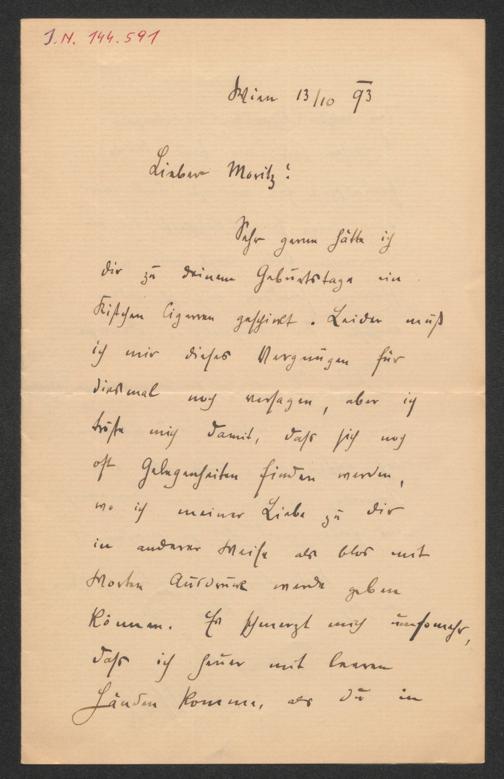 J.N. 144.591
Wien 13/10 93
Lieber Moritz!
Sehr gerne hätte ich
dir zu deinem Geburtstage ein
Kistchen Cigarren geschickt. Leider muß
ich mir dieses Vergnügen für
diesmal noch versagen, aber ich
tröste mich damit, daß sich noch
oft Gelegenheiten finden werden,
wo ich meiner Liebe zu dir
in anderer Weise als blos mit
Worten Ausdruck werde geben
können. Es schmerzt mich umsomehr,
daß ich heuer mit leeren
Händen komme, als du in